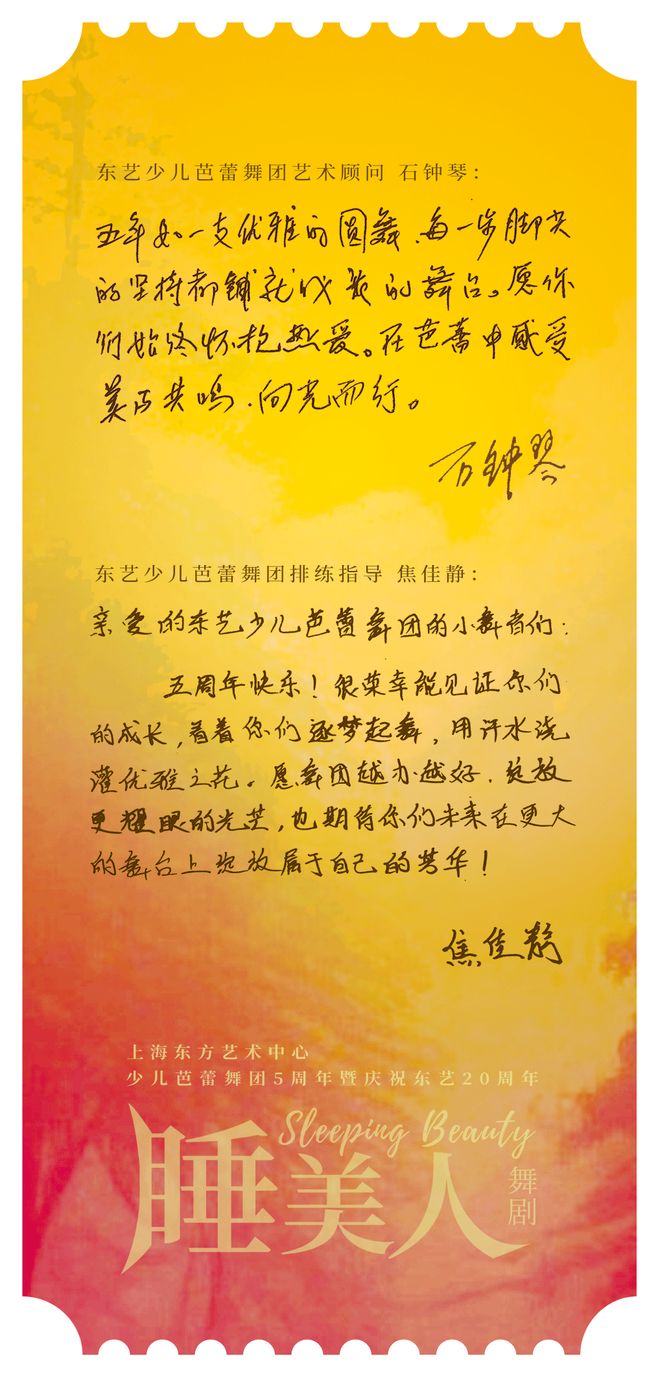 东艺少儿芭蕾舞团艺术顾问 石钟琴：
五年如一支优雅的圆舞，每一步脚尖
的坚持都铺就成长的舞台。愿你
们始终怀抱热爱。在芭蕾中感受
美与共鸣，向光而行。
石钟琴
东艺少儿芭蕾舞团排练指导 焦佳静：
亲爱的东艺少儿芭蕾舞团的小舞者们：
五周年快乐！很荣幸能见证你们
的成长，看着你们逐梦起舞，用汗水浇
灌优雅之花。愿舞团越办越好，绽放
更耀眼的光芒，也期待你们未来在更大
的舞台上绽放属于自己的芳华！
焦佳静
上海东方艺术中心
少儿芭蕾舞团5周年暨庆祝东艺20周年
Sleeping Beauty
睡美人
舞剧